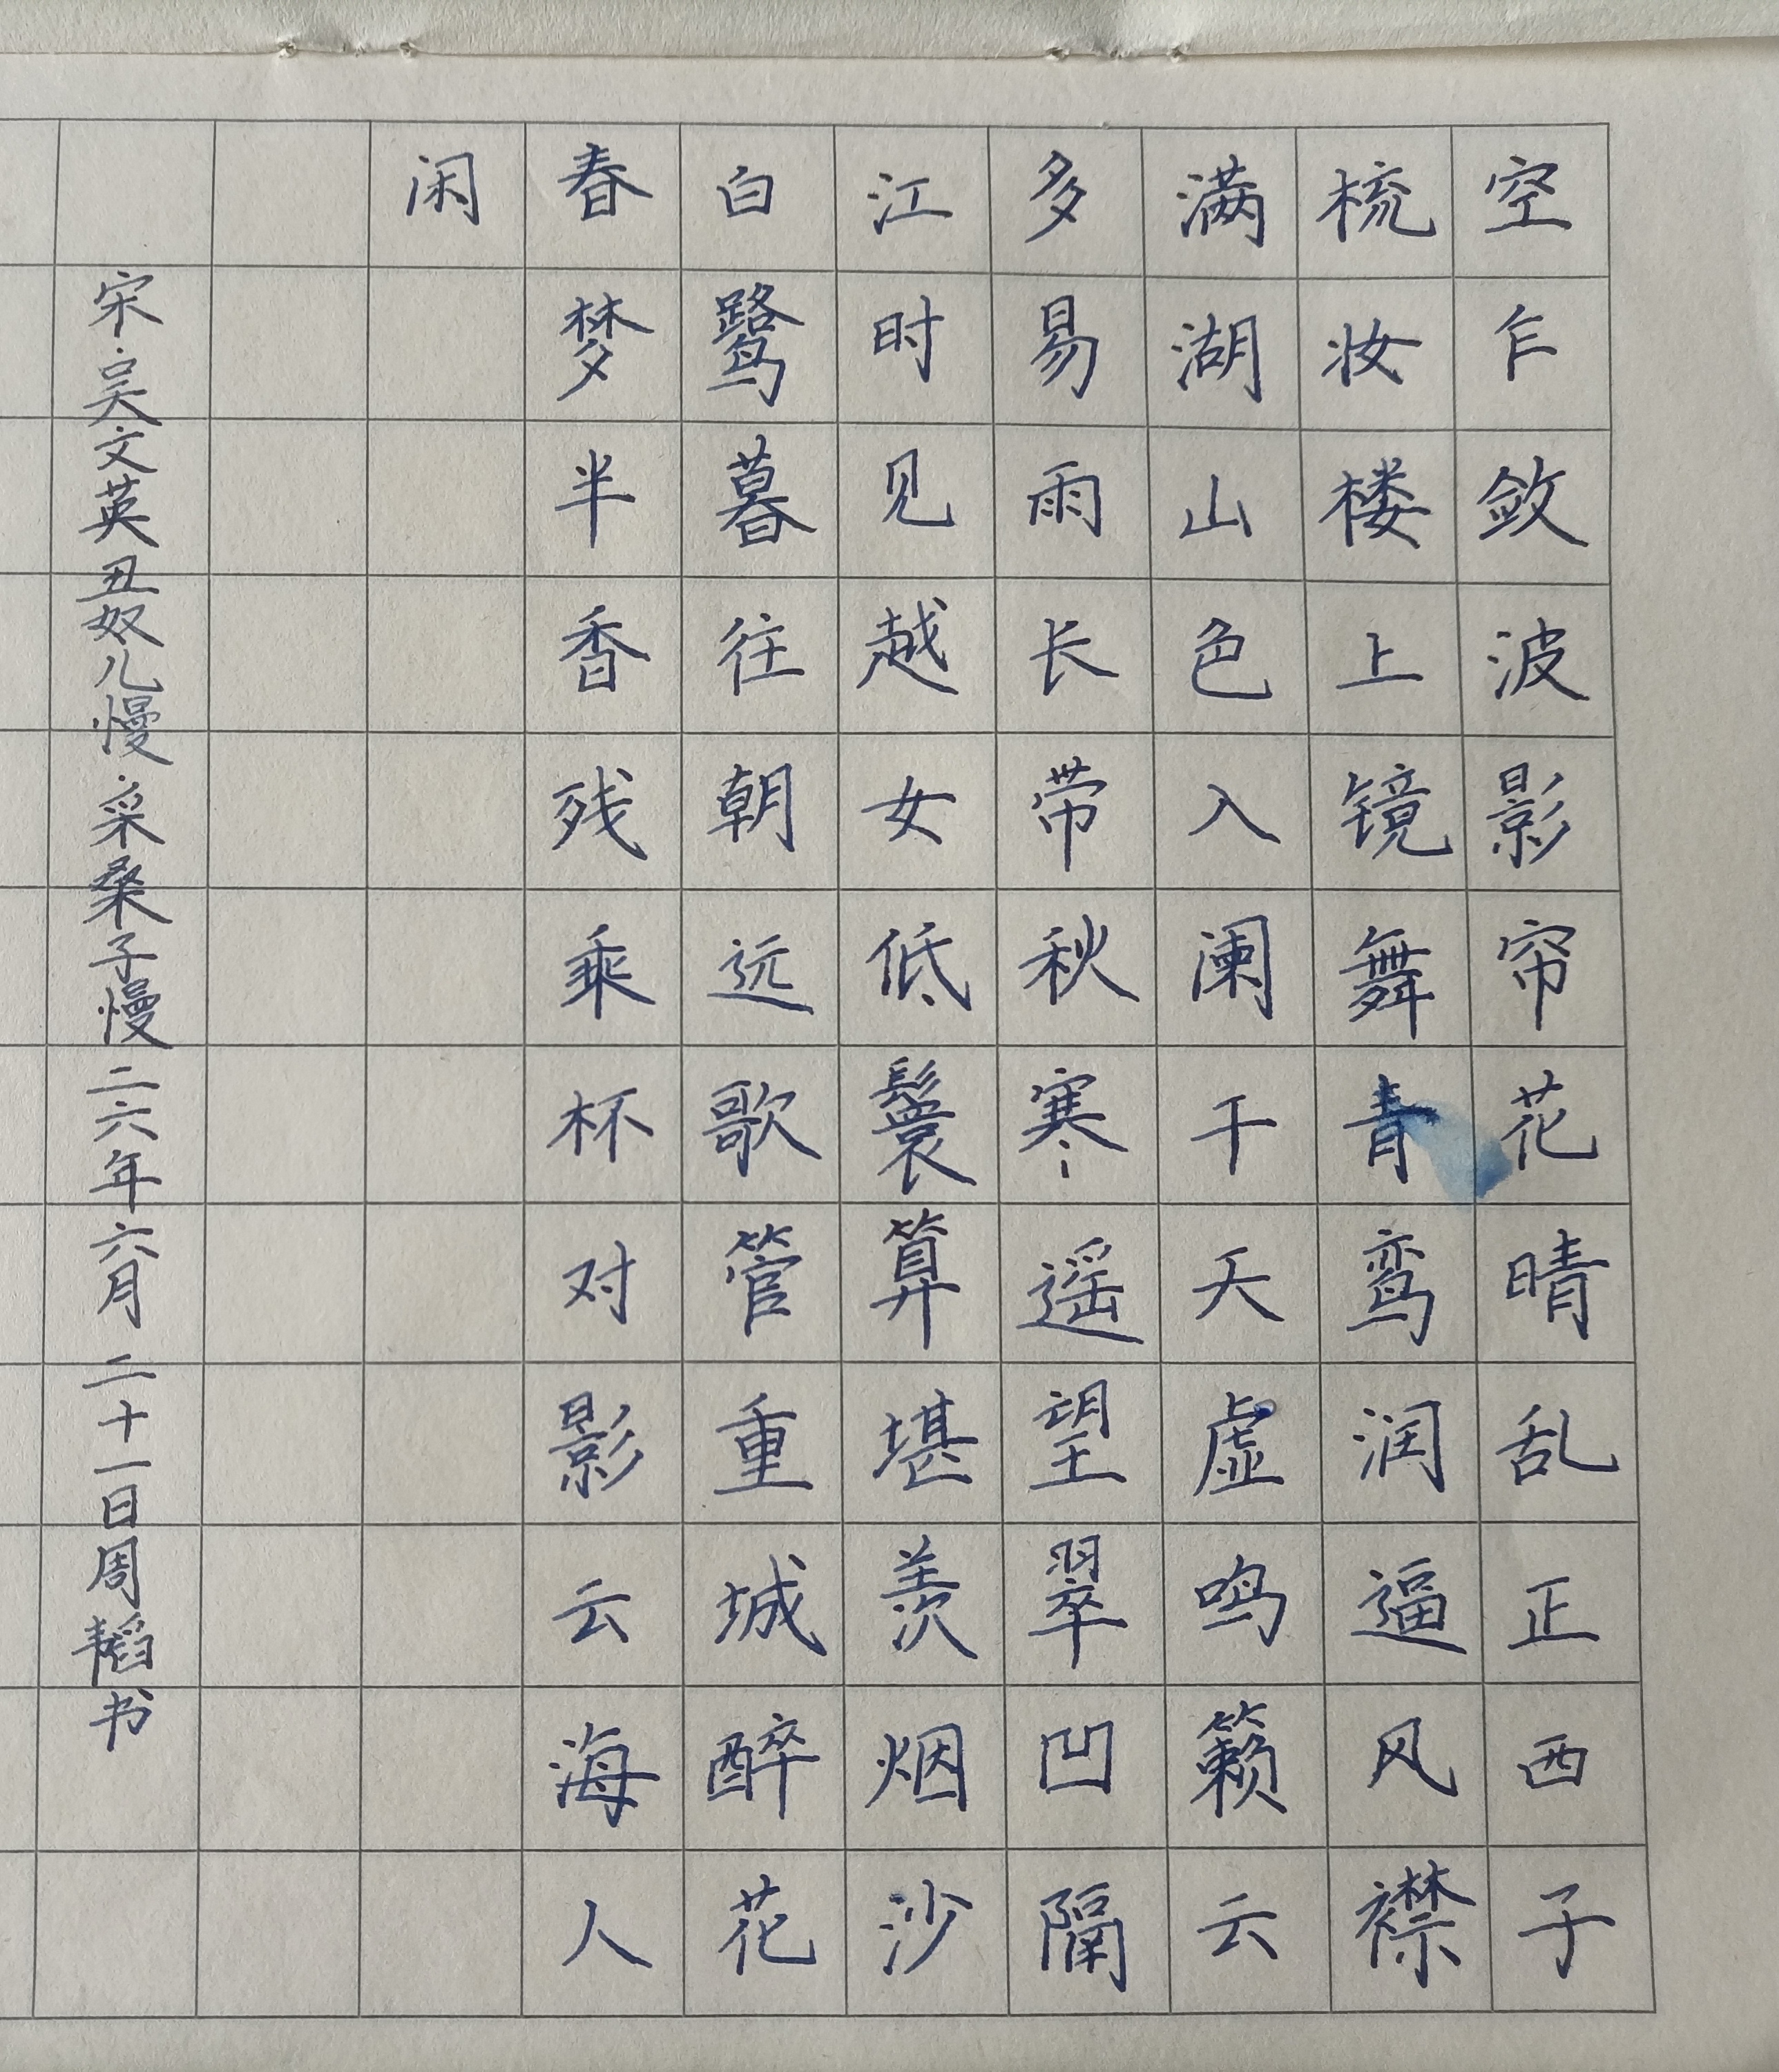 空乍敛波影帘花晴乱正西子
梳妆楼上镜舞青鸾润逼风襟
满湖山色入阑干天虚鸣籁云
多易雨长带秋寒遥望翠凹隔
江时见越女低鬟算堪羡烟沙
白鹭暮往朝远歌管重城醉花
春梦半香残乘杯对影云海人
闲
宋·吴文英丑奴儿慢·采桑子慢二六年六月二十一日周韬书